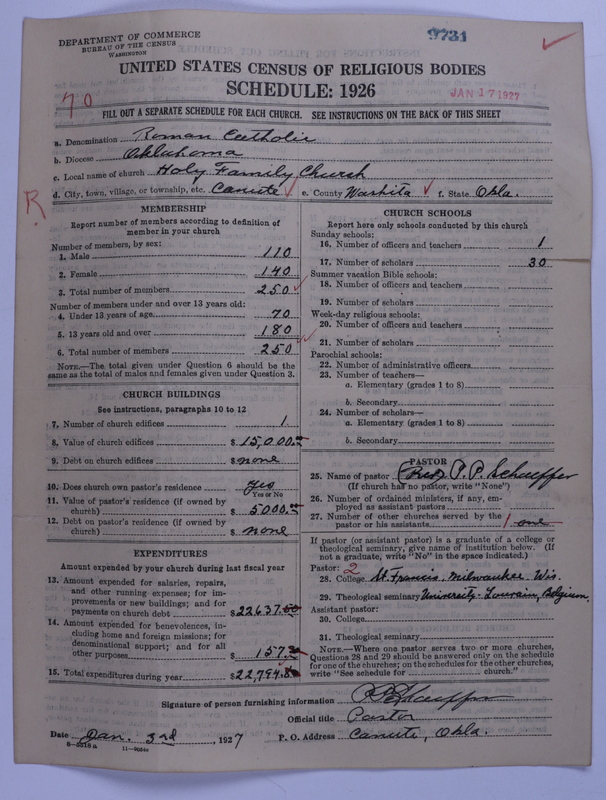 DEPARTMENT OF COMMERCE
BUREAU OF THE CENSUS
WASHINGTON
9731
UNITED STATES CENSUS OF RELIGIOUS BODIES
SCHEDULE: 1926
JAN 17 1927
70
FILL OUT A SEPARATE SCHEDULE FOR EACH CHURCH. SEE INSTRUCTIONS ON THE BACK OF THIS SHEET
a. Denomination Roman Catholic
b. Diocese Oklahoma
c. Local name of church Holy Family Church
d. City, town, village, or township, etc. Canute e. County Washita f. State Okla.
R
MEMBERSHIP
Report number of members according to definition of member in your church
Number of members, by sex:
1. Male 110
2. Female 140
3. Total number of members 250
Number of members under and over 13 years old:
4. Under 13 years of age 70
5. 13 years old and over 180
6. Total number of members 250
NOTE.—The total given under Question 6 should be the
same as the total of males and females given under Question 3.
CHURCH BUILDINGS
See instructions, paragraphs 10 to 12
7. Number of church edifices 1
8. Value of church edifices $ 15,000.00
9. Debt on church edifices $ none
10. Does church own pastor's residence? yes
Yes or No
11. Value of pastor's residence (if owned by
church) $ 5000.00
12. Debt on pastor's residence (if owned by
church) $ none
EXPENDITURES
Amount expended by your church during last fiscal year
13. Amount expended for salaries, repairs,
and other running expenses; for im-
provements or new buildings; and for
payments on church debt $ 22637.50
14. Amount expended for benevolences, in-
cluding home and foreign missions; for
denominational support; and for all
other purposes $ 157.
15. Total expenditures during year $ 22,794.
CHURCH SCHOOLS
Report here only schools conducted by this church
Sunday schools:
16. Number of officers and teachers 1
17. Number of scholars 30
Summer vacation Bible schools:
18. Number of officers and teachers
19. Number of scholars
Week-day religious schools:
20. Number of officers and teachers
21. Number of scholars
Parochial schools:
22. Number of administrative officers
23. Number of teachers—
a. Elementary (grades 1 to 8)
b. Secondary
24. Number of scholars—
a. Elementary (grades 1 to 8)
b. Secondary
PASTOR
25. Name of pastor (Rev) P. P. Schaeffer
(If church has no pastor, write "None")
26. Number of ordained ministers, if any, em-
ployed as assistant pastors
27. Number of other churches served by the
pastor or his assistants 1 one
If pastor (or assistant pastor) is a graduate of a college or
theological seminary, give name of institution below. (If
not a graduate, write "No" in the space indicated.)
Pastor: 2
28. College St. Francis, Milwaukee, Wis.
29. Theological seminary University - Louvain, Belgium
Assistant pastor:
30. College
31. Theological seminary
NOTE.—Where one pastor serves two or more churches,
Questions 28 and 29 should be answered only on the schedule
for one of the churches; on the schedules for the other churches,
write "See schedule for church."
Signature of person furnishing information P. P. Schaeffer
Official title Pastor
Date Jan. 3rd, 1927 P. O. Address Canute, Okla.